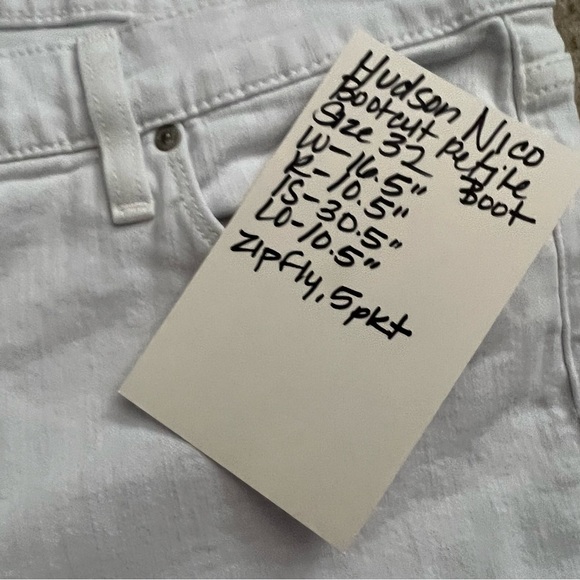 Hudson Nico
Bootcut Petite Boot
Size 32
W-16.5"
R-10.5"
IS-30.5"
LO-10.5"
Zip fly, 5pkt